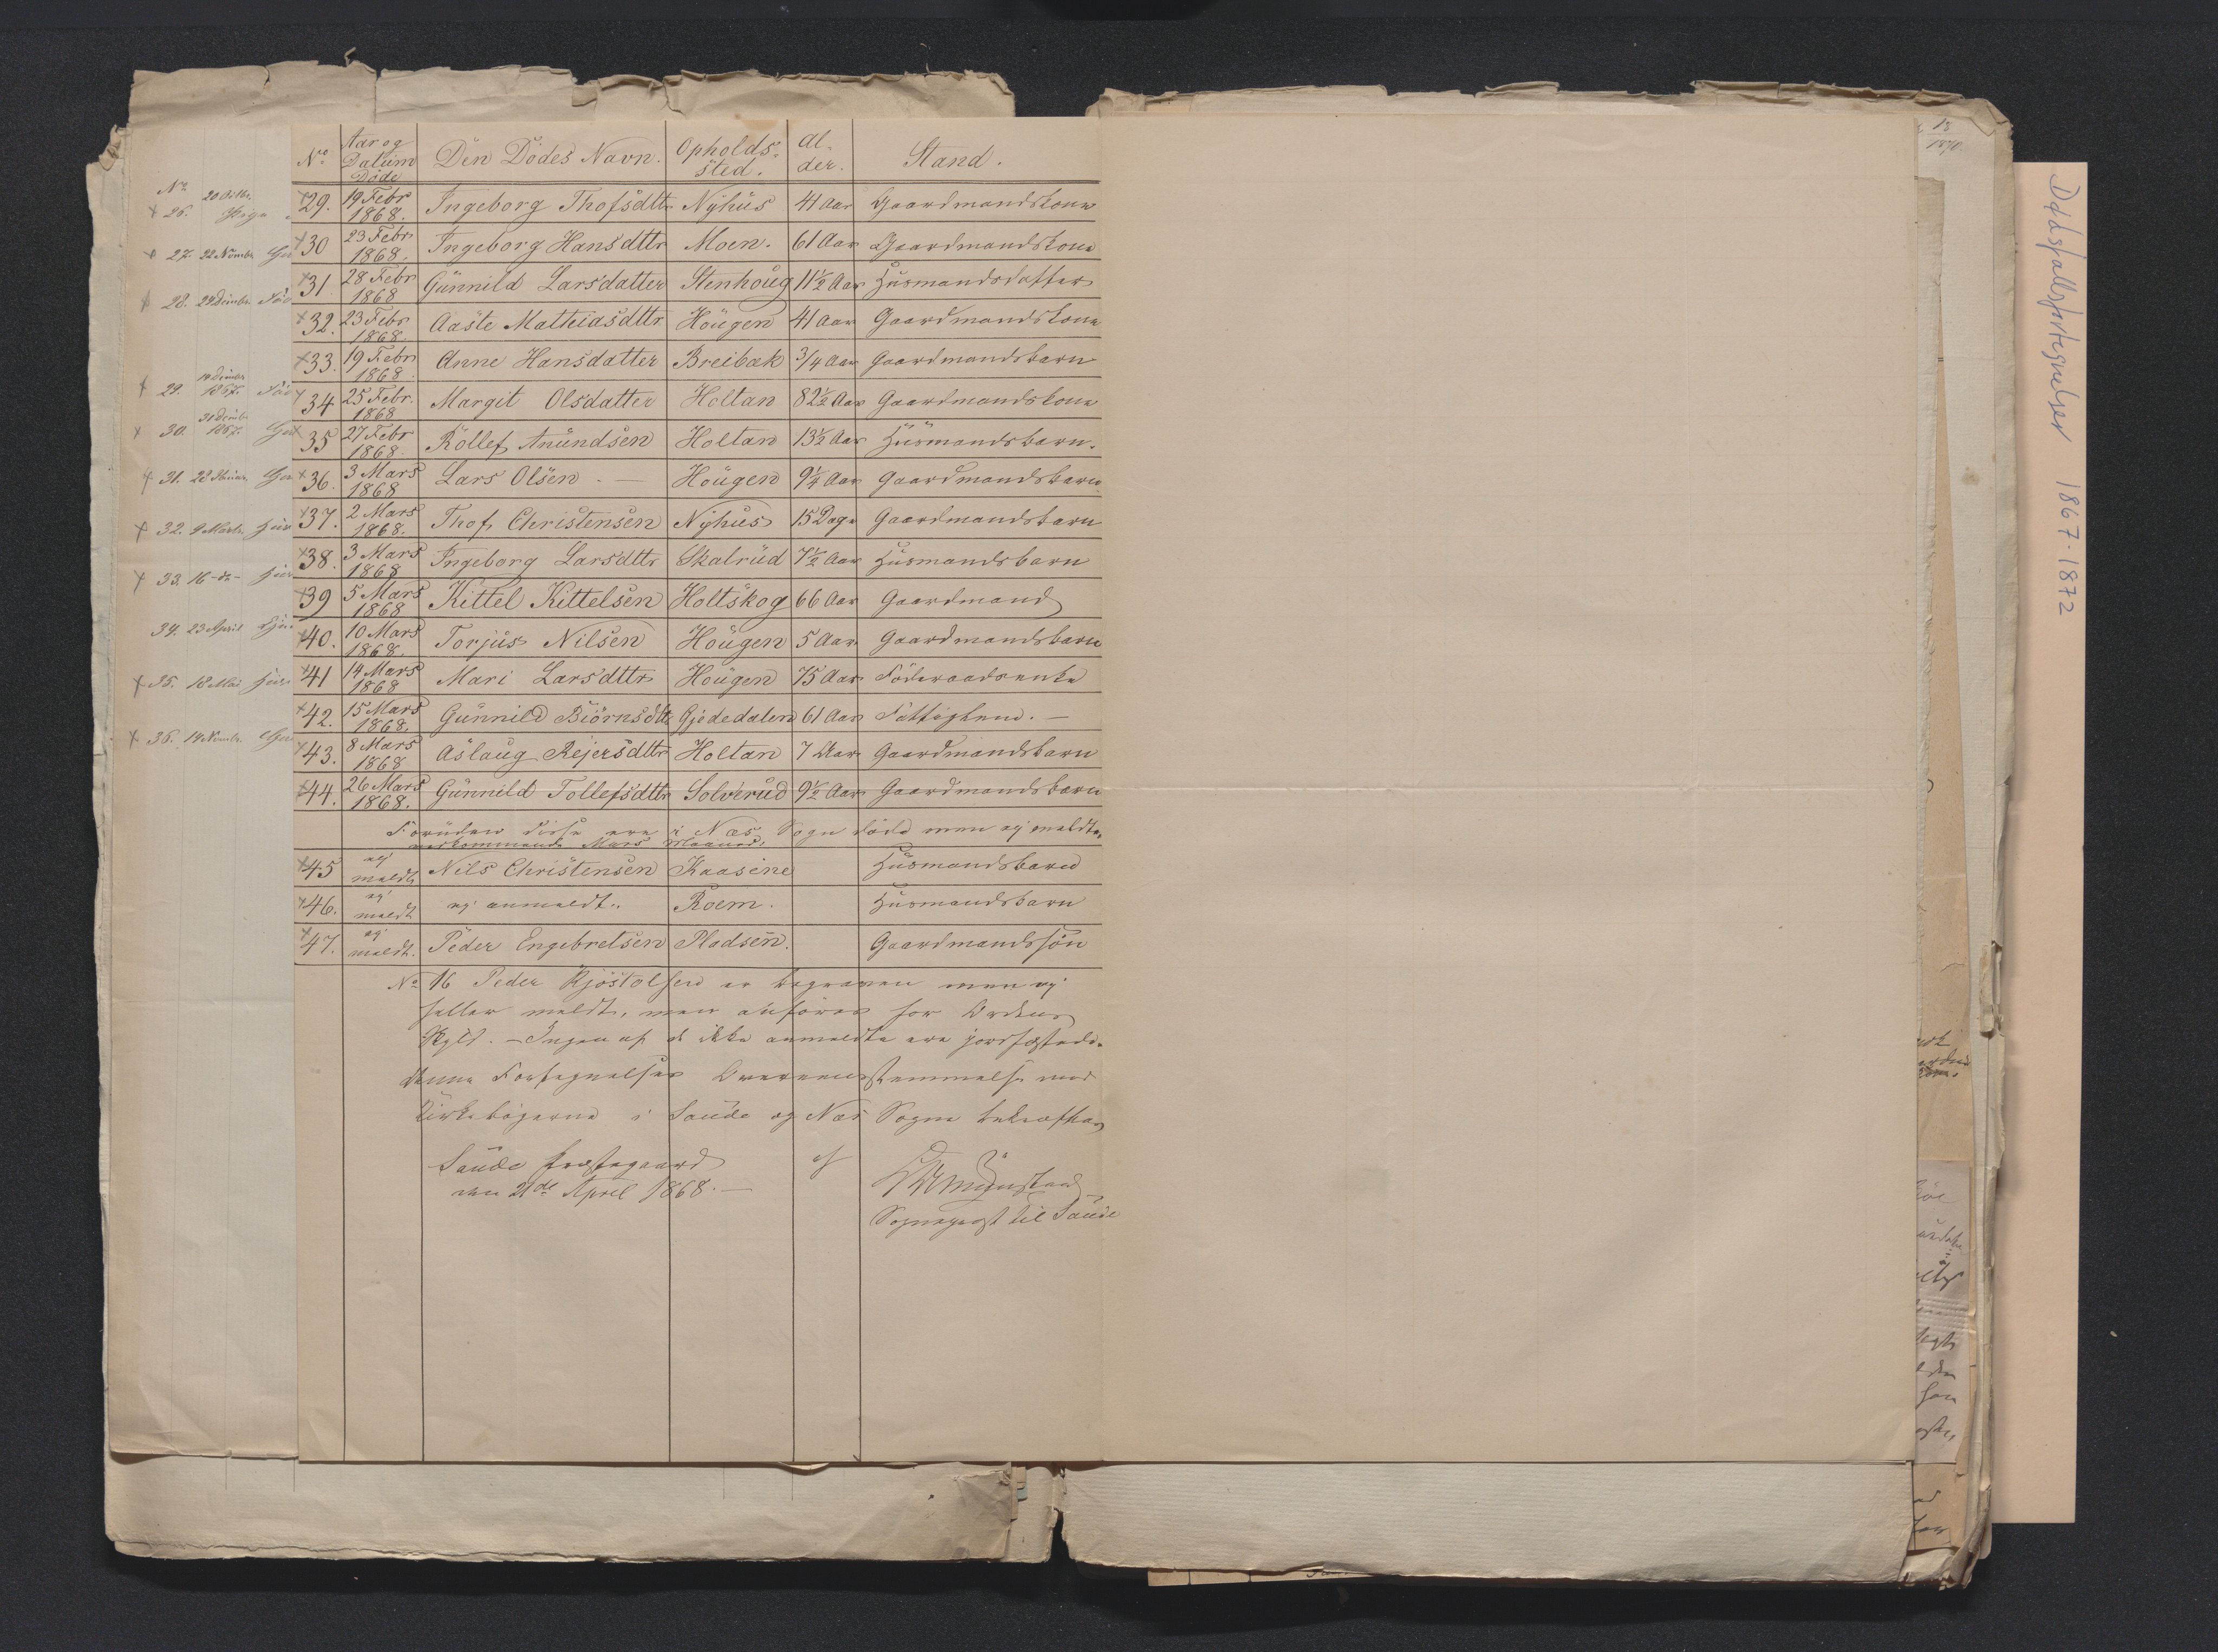 No | Aar og Datum Döde | Den Dödes Navn. | Opholds-sted. | Al-der. | Stand.
29. | 19 Febr 1868. | Ingeborg Thofsdttr | Nyhus | 41 Aar | Gaardmandskone
30 | 23 Febr 1868. | Ingeborg Hansdttr | Moen. | 61 Aar | Gaardmandskone
31 | 28 Febr 1868 | Gunnild Larsdatter | Stenhoug | 11½ Aar | Husmandsdatter
32. | 23 Febr 1868. | Aaste Matheiasdttr | Hougen | 41 Aar | Gaardmandskone
33. | 19 Febr 1868. | Anne Hansdatter | Breibak | 3/4 Aar | Gaardmandsbarn
34 | 25 Febr. 1868 | Margit Olsdatter | Holtan | 82½ Aar | Gaardmandskone
35 | 27 Febr 1868. | Rollef Anundsen | Holtan | 13½ Aar | Husmandsbarn.
36. | 3 Mars 1868 | Lars Olsen. — | Hougen | 9¼ Aar | Gaardmandsbarn.
37. | 2 Mars 1868. | Thof Christensen | Nyhus | 15 Dage | Gaardmandsbarn
38. | 3 Mars 1868 | Ingeborg Larsdttr | Skalrud | 7½ Aar | Husmandsbarn
39 | 5 Mars 1868 | Kittel Kittelsen | Holtskog | 66 Aar | Gaardmand
40. | 10 Mars 1868. | Torjus Nilsen | Hougen | 5 Aar | Gaardmandsbarn
41 | 14 Mars 1868 | Mari Larsdttr | Hougen | 75 Aar | Föderaadsenke
42. | 15 Mars 1868. | Gunnild Biörnsdttr | Gjededalen | 61 Aar | Fattiglem. —
43. | 8 Mars 1868 | Aslaug Rejersdttr | Holtan | 7 Aar | Gaardmandsbarn
44. | 26 Mars 1868. | Gunnild Tollefsdttr | Solverud | 9½ Aar | Gaardmandsbarn
Foruden disse ere i Næs Sogn döde men ej meldte,
Mars Maaned.
45 | ej meldt | Nils Christensen | Kaasene | Husmandsbarn
46. | ej meldt | ej anmeldt. | Roem. | Husmandsbarn
47. | ej meldt. | Peder Engebretsen | Pladsen. | Gaardmandssön
No 16 Peder Kjöstolsen er begraven men ej
heller meldt, men anföres for Ordens
Skyld. — Ingen af de ikke anmeldte ere jordfæstede.
Denne Fortegnelses Overeensstemmelse med
Kirkebögerne i Saude og Næs Sogne bekræftes
Saude Præstegaard af
den 21de April 1868. —
Sognepræst til Saude
No
26. 20 Oktbr. Pige
27. 22 Novmbr.
28.
29. 1867.
30. 1867.
31.
32. 9 Marts.
33. 16 - do -
34. 23 April
35. 18 Mai
36. 14 Novmbr.
18
1870.
Dødsfallsfortegnelser 1867-1872